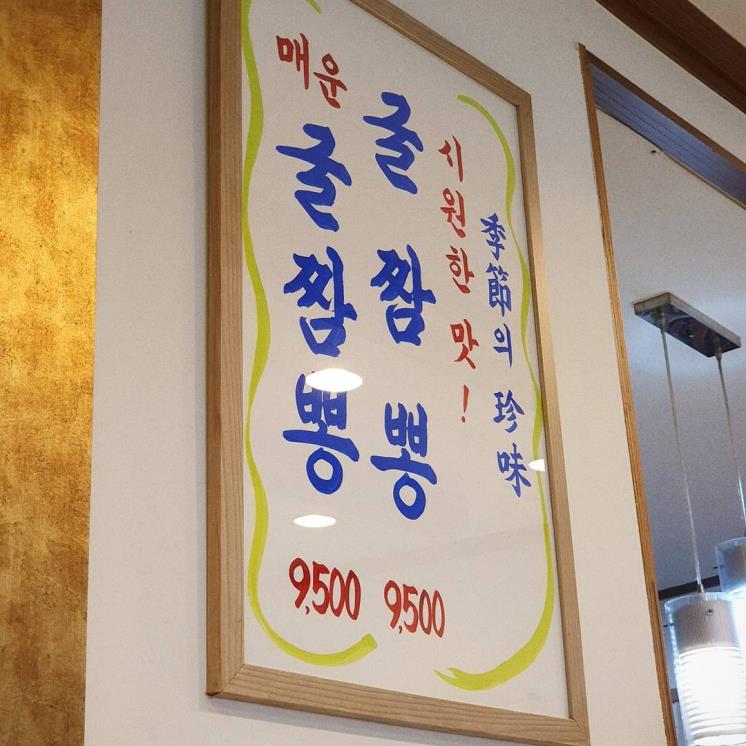 季節의 珍味
시원한 맛!
굴짬뽕
9,500
매운
굴짬뽕
9,500